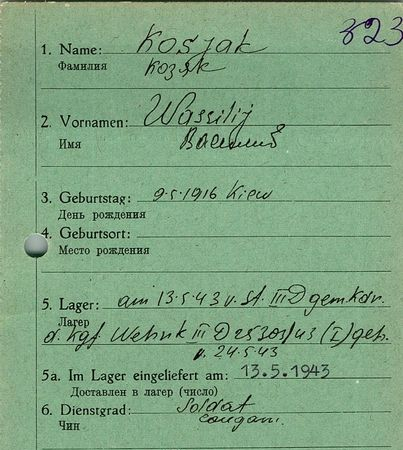 323
1. Name: Kosjak
Фамилия Козяк
2. Vornamen: Wassilij
Имя Василий
3. Geburtstag: 9.5.1916 Kiew
День рождения
4. Geburtsort:
Место рождения
5. Lager: am 13.5.43 v. St. III D gem. Kdr.
Лагер
d. Kgf. Wehrk III D 2530s/43 (I) geh.
v. 24.5.43
5a. Im Lager eingeliefert am: 13.5.1943
Доставлен в лагер (число)
6. Dienstgrad: Soldat
Чин солдат.